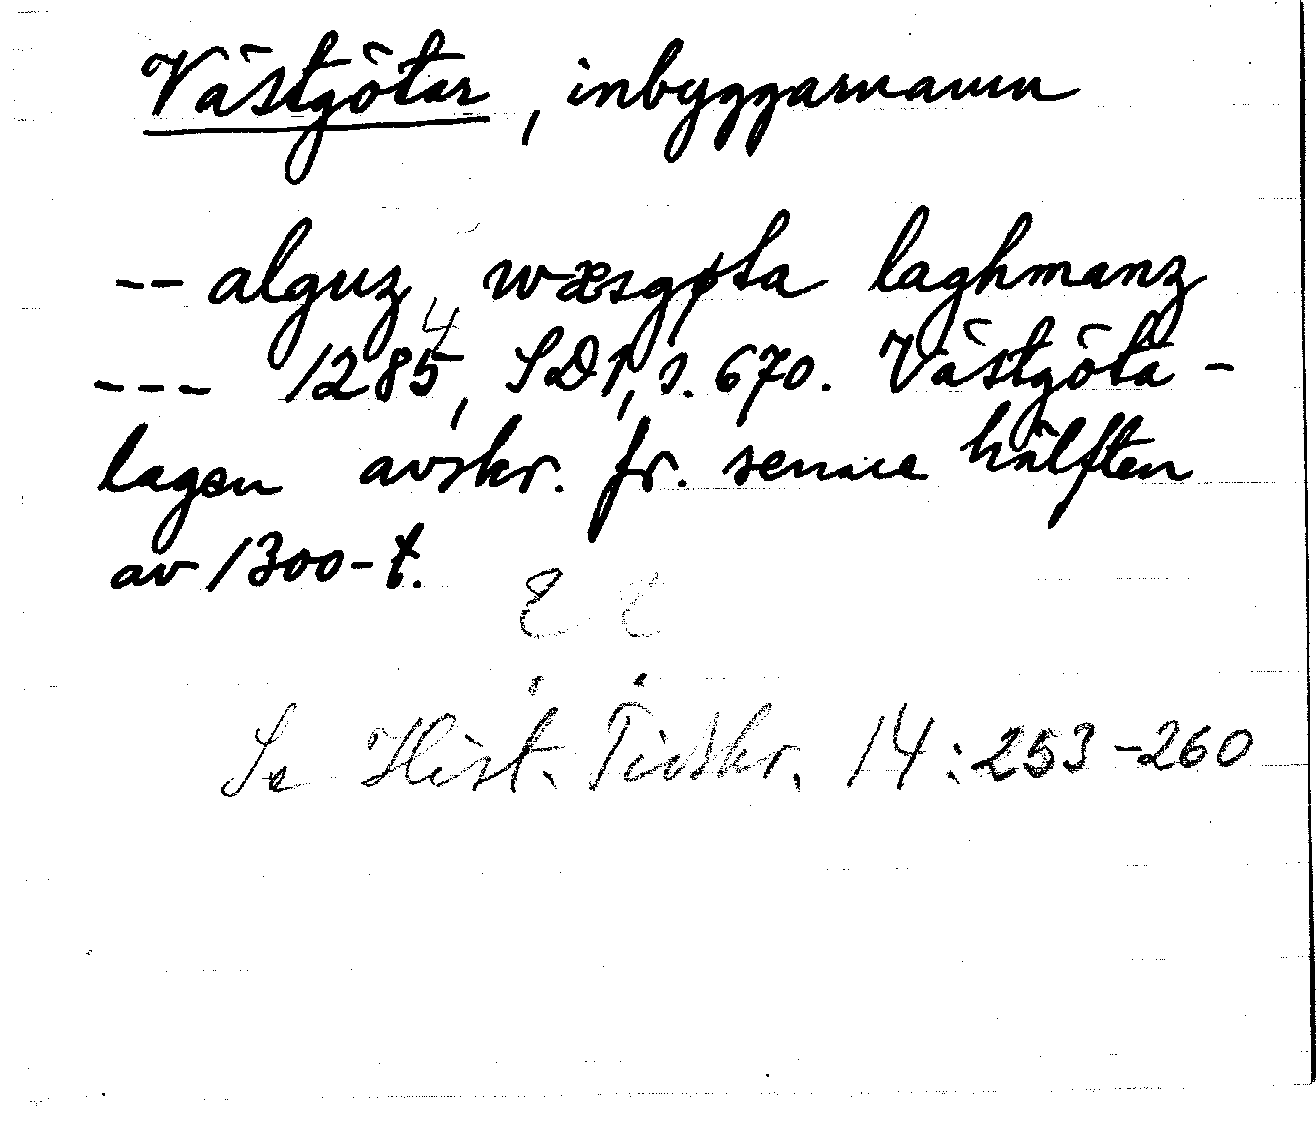 Västgötar, inbyggarnamn
-- alguz wæsgøta laghmanz
--- 1285, SD 1, s. 670. Västgöta-
lagen avskr. fr. senare hälften
av 1300-t.
Se Hist. Tidskr. 14:253-260